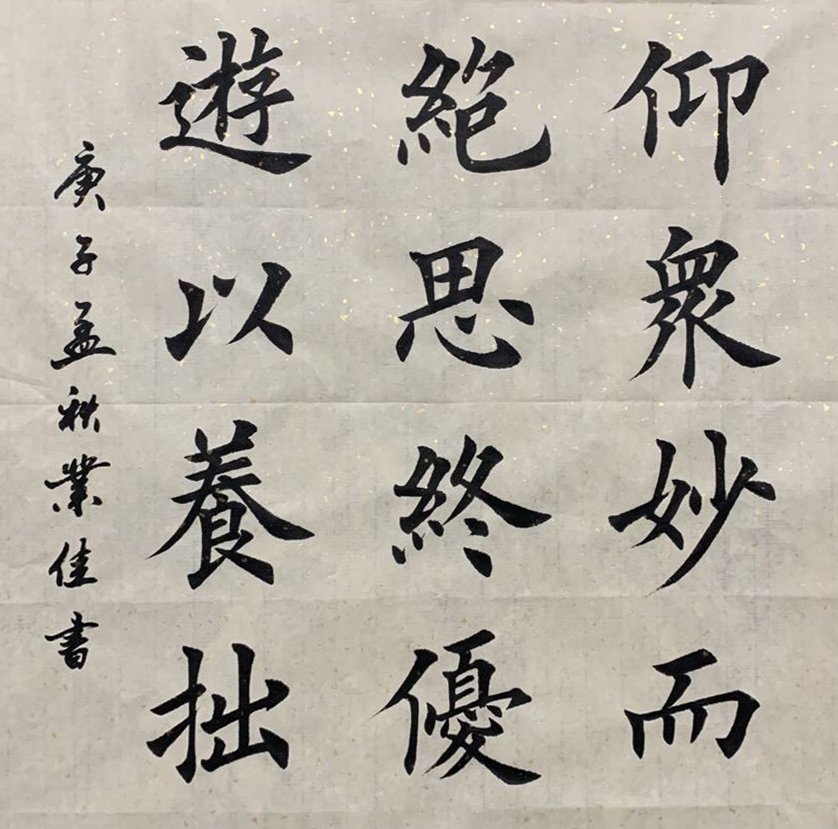 仰眾妙而
絶思終優
遊以養拙
庚子孟秋業佳書